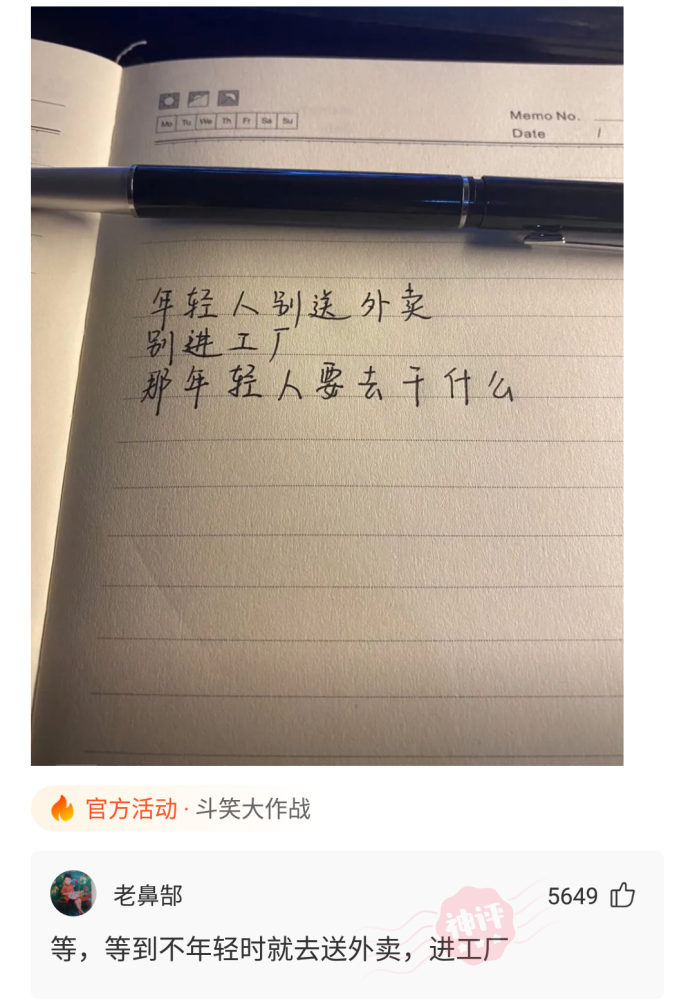 Mo Tu We Th Fr Sa Su
Memo No.
Date /
年轻人别送外卖
别进工厂
那年轻人要去干什么
官方活动 · 斗笑大作战
老鼻郜
5649
神评
等，等到不年轻时就去送外卖，进工厂